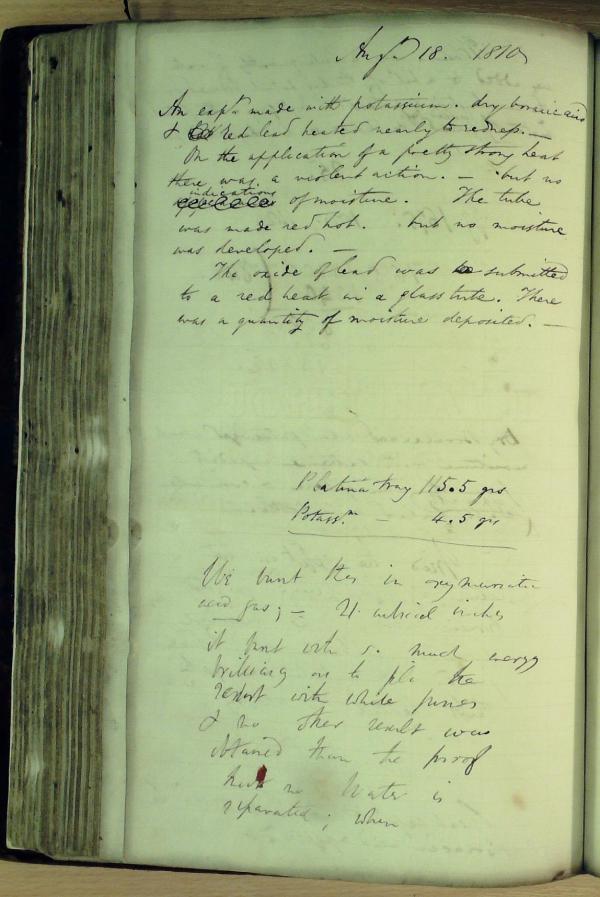 Augst 18. 1810
An expt. made with potassium. dry boracic acid
& red lead heated nearly to redness. —
On the application of a pretty strong heat
there was a violent action. — but no
indications
of moisture. The tube
was made red hot. but no moisture
was developed. —
The oxide of lead was submitted
to a red heat in a glass tube. There
was a quantity of moisture deposited. —
Platina tray 115.5 grs
Potassm. — 4.5 grs
We burnt this in oxymuriatic
acid gas; — 21. cubical inches
it burnt with so much energy
brilliancy as to fill the
retort with white fumes
& no other result was
obtained than the proof
that no Water is
separated; when